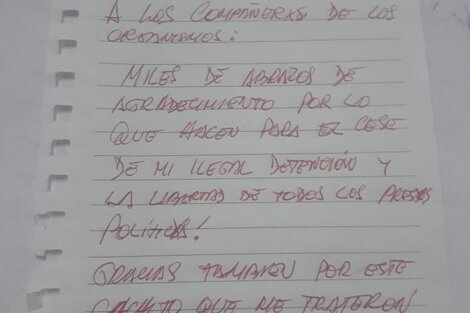 A LOS COMPAÑERXS DE LOS
ORGANISMOS:
MILES DE ABRAZOS DE
AGRADECIMIENTO POR LO
QUE HACEN PARA EL CESE
DE MI ILEGAL DETENCIÓN Y
LA LIBERTAD DE TODOS LOS PRESXS
POLÍTICXS!
GRACIAS TAMBIEN POR ESTE
QUE ME TRAJERON